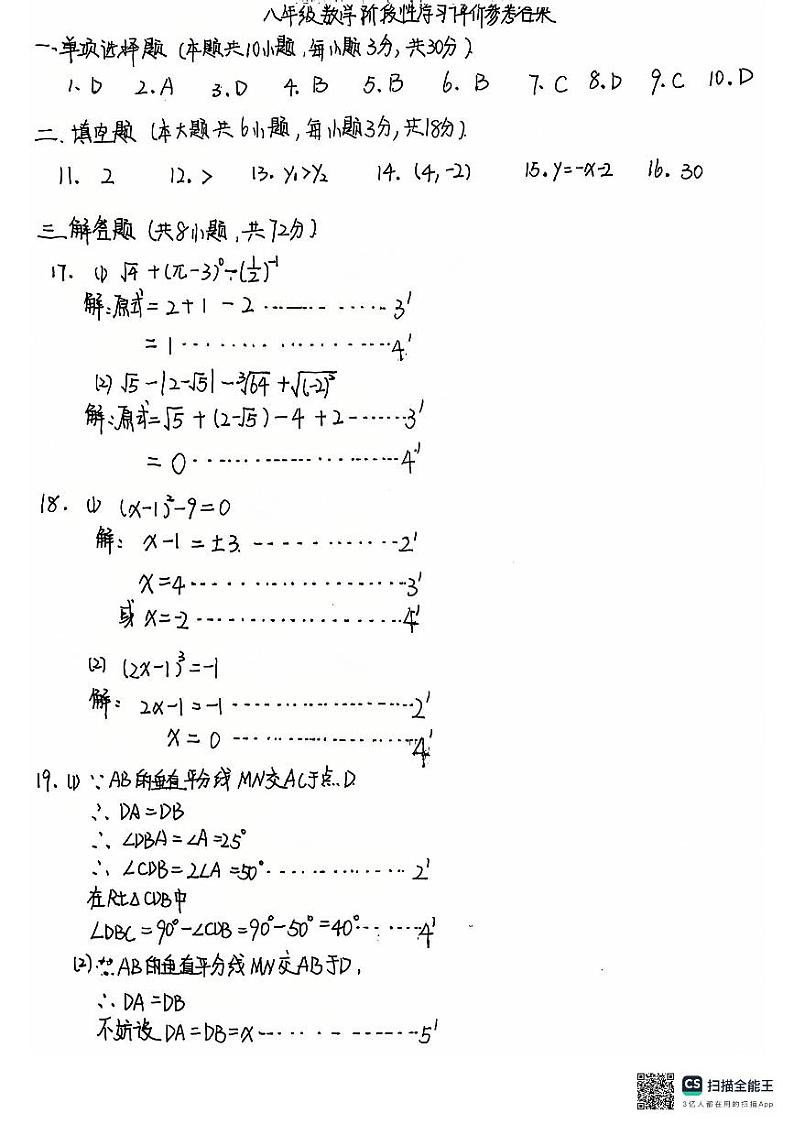 八年级数学阶段性学习评价参考答案
一、单项选择题 (本题共10小题,每小题3分,共30分)
1. D 2. A 3. D 4. B 5. B 6. B 7. C 8. D 9. C 10. D
二. 填空题 (本大题共6小题,每小题3分,共18分).
11. 2 12. > 13. y₁>y₂ 14. (4,-2) 15. y=-x-2 16. 30
三.解答题 (共8小题,共72分)
17. (1) √4+(π-3)⁰÷(1/2)⁻¹
解:原式=2+1-2 ............ 3'
=1 ............ 4'
(2) √5-|2-√5|-³√64+√(-2)²
解:原式=√5+(2-√5)-4+2 ...... 3'
=0 ............ 4'
18. (1) (x-1)²-9=0
解: x-1=±3. ............ 2'
x=4 ............ 3'
或 x=-2 ............ 4'
(2) (2x-1)³=-1
解: 2x-1=-1 ............ 2'
x=0 ............ 4'
19. (1) ∵AB的垂直平分线MN交AC于点D.
∴DA=DB
∴∠DBA=∠A=25°
∴∠CDB=2∠A=50° ............ 2'
在Rt△CDB中
∠DBC=90°-∠CDB=90°-50°=40° ...... 4'
(2) ∵AB的垂直平分线MN交AB于D,
∴DA=DB
不妨设DA=DB=x ............ 5'
CS 扫描全能王
3亿人都在用的扫描App